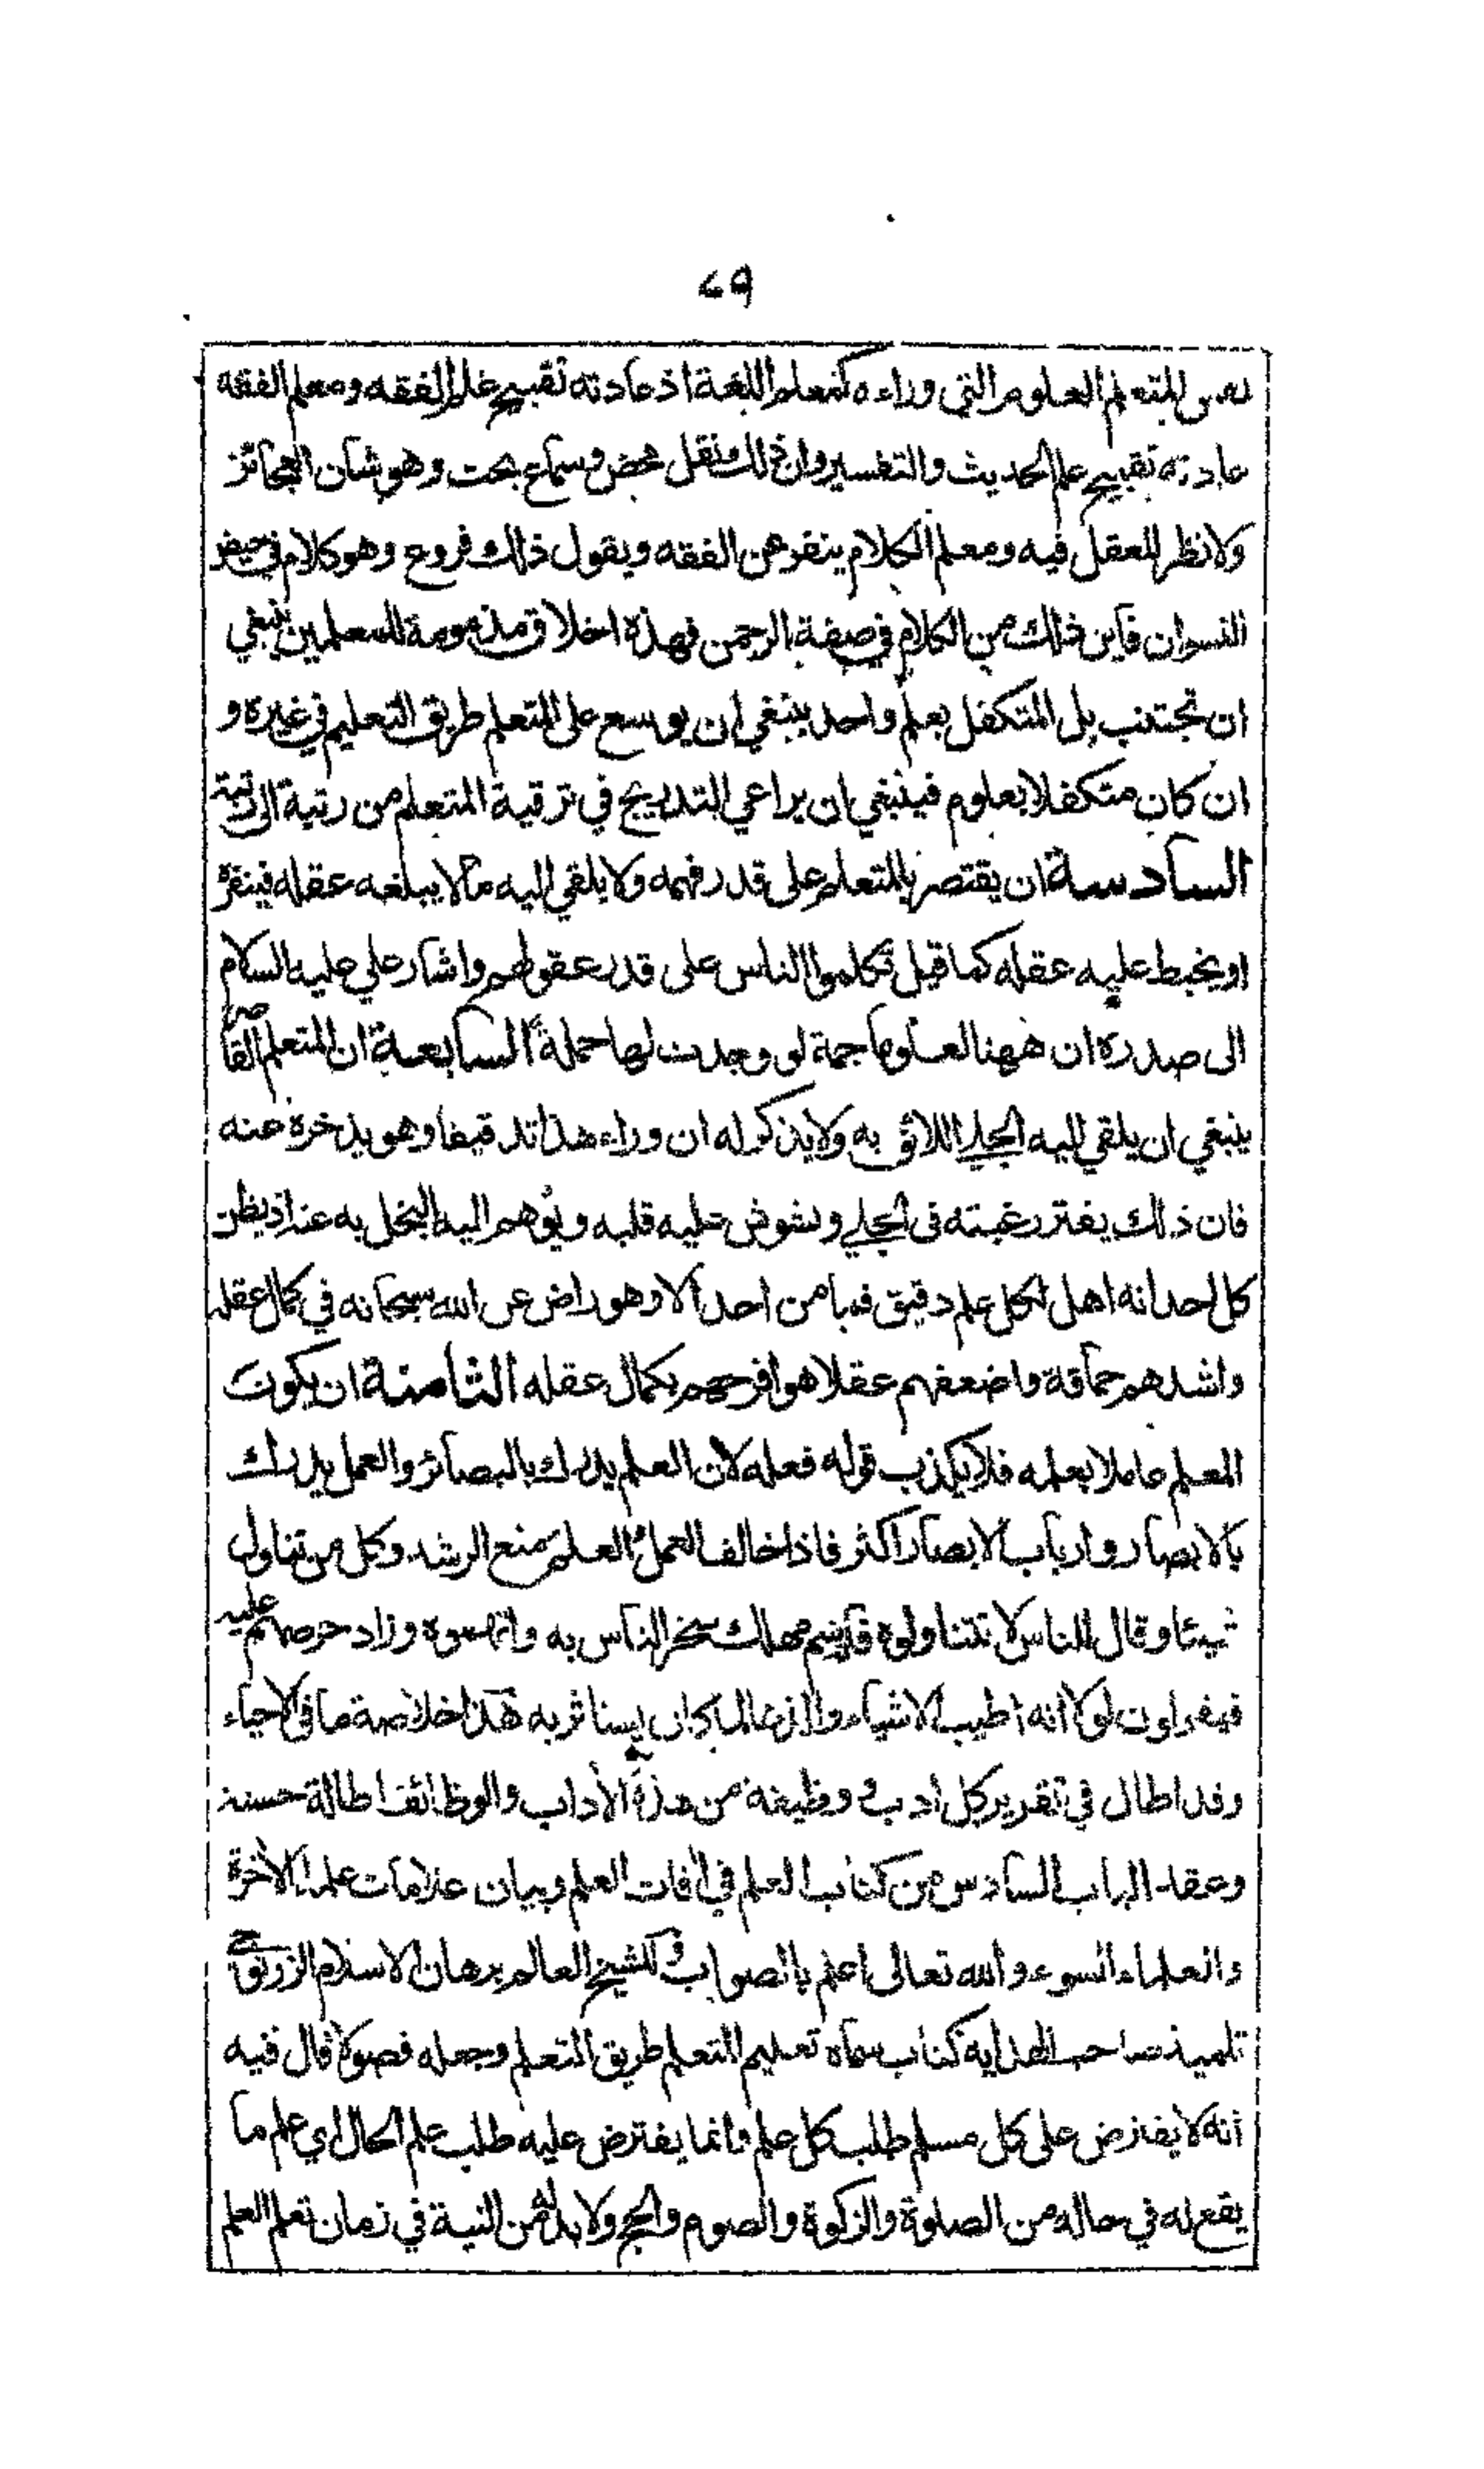 ٤٩
نفس المتعلم العلوم التي وراءه كمعلم اللغة اذ عادته تقبيح علم الفقه ومعلم الفقه
عادته تقبيح علم الحديث والتفسير وان ذلك نقل محض وسماع بحت وهو شان العجائز
ولا نظر للعقل فيه ومعلم الكلام ينفر عن الفقه ويقول ذلك فروع وهو كلام في حيض
النسوان فاين ذلك من الكلام في صفة الرحمن فهذه اخلاق مذمومة للمعلمين ينبغي
ان تجتنب بل المتكفل بعلم واحد ينبغي ان يوسع على المتعلم طريق التعليم في غيره و
ان كان متكفلا بعلوم فينبغي ان يراعي التدريج في ترقية المتعلم من رتبة الى رتبة
السادسة ان يقتصر بالمتعلم على قدر فهمه ولا يلقي اليه ما لا يبلغه عقله فينفره
او يخبط عليه عقله كما قيل تكلموا الناس على قدر عقولهم واشار علي عليه السلام
الى صدره ان ههنا لعلوما جمة لو وجدت لها حملة السابعة ان المتعلم القاصر
ينبغي ان يلقي اليه الجلي اللائق به ولا يذكر له ان وراء هذا تدقيقا وهو يدخره عنه
فان ذلك يفتر رغبته في الجلي ويشوش عليه قلبه ويوهم اليه البخل به عنه اذ يظن
كل احد انه اهل لكل علم دقيق فما من احد الا وهو راض عن الله سبحانه في كمال عقله
واشدهم حماقة واضعفهم عقلا هو افرحهم بكمال عقله الثامنة ان يكون
المعلم عاملا بعلمه فلا يكذب قوله فعله لان العلم يدرك بالبصائر والعمل يدرك
بالابصار وارباب الابصار اكثر فاذا خالف العمل العلم منع الرشد وكل من تناول
شيئا وقال للناس لا تتناولوه فانه سم مهلك سخر الناس به واتهموه وزاد حرصهم عليه
فيقولون لولا انه اطيب الاشياء والذها لما كان يستاثر به هذا خلاصة ما في الاحياء
وقد اطال في تقرير كل ادب ووظيفة من هذه الآداب والوظائف اطالة حسنة
وعقد الباب السادس من كتاب العلم في آفات العلم وبيان علامات علماء الآخرة
والعلماء السوء والله تعالى اعلم بالصواب وللشيخ العالم برهان الاسلام الزرنوجي
تلميذ صاحب الهداية كتاب سماه تعليم المتعلم طريق التعلم وجعله فصولا قال فيه
انه لا يفترض على كل مسلم طلب كل علم وانما يفترض عليه طلب علم الحال اي علم ما
يقع له في حاله من الصلوة والزكوة والصوم والحج ولا بد له من النية في زمان تعلم العلم